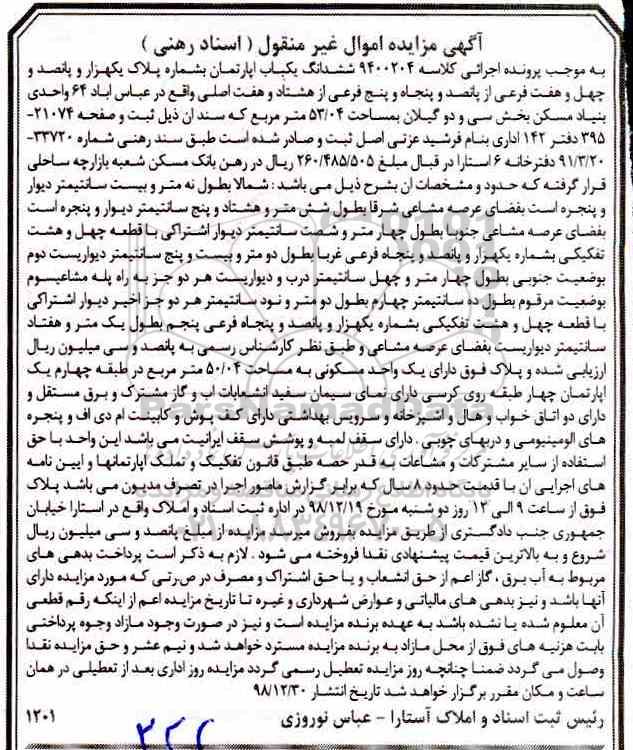 آگهی مزایده اموال غیر منقول ( اسناد رهنی )
به موجب پرونده اجرائی کلاسه ۹۴۰۰۲۰۴ ششدانگ یکباب اپارتمان بشماره پلاک یکهزار و پانصد و
چهل و هفت فرعی از پانصد و پنجاه و پنج فرعی از هشتاد و هفت اصلی واقع در عباس اباد ۶۴ واحدی
بنیاد مسکن بخش سی و دو گیلان بمساحت ۵۳/۰۴ متر مربع که سند ان ذیل ثبت و صفحه ۲۱۰۷۴-
۳۹۵ دفتر ۱۴۲ اداری بنام فرشید عزتی اصل ثبت و صادر شده است طبق سند رهنی شماره ۳۳۷۲۰-
۹۱/۳/۲۰ دفترخانه ۶ استارا در قبال مبلغ ۲۶۰/۴۸۵/۵۰۵ ریال در رهن بانک مسکن شعبه بازارچه ساحلی
قرار گرفته که حدود و مشخصات ان بشرح ذیل می باشد : شمالا بطول نه متر و بیست سانتیمتر دیوار
و پنجره است بفضای عرصه مشاعی شرقا بطول شش متر و هشتاد و پنج سانتیمتر دیوار و پنجره است
بفضای عرصه مشاعی جنوبا بطول چهار متر و شصت سانتیمتر دیوار اشتراکی با قطعه چهل و هشت
تفکیکی بشماره یکهزار و پانصد و پنجاه فرعی غربا بطول دو متر و بیست و پنج سانتیمتر دیواریست دوم
بوضعیت جنوبی بطول چهار متر و چهل سانتیمتر درب و دیواریست هر دو جز به راه پله مشاعیسوم
بوضعیت مرقوم بطول ده سانتیمتر چهارم بطول دو متر و نود سانتیمتر هر دو جز اخیر دیوار اشتراکی
با قطعه چهل و هشت تفکیکی بشماره یکهزار و پانصد و پنجاه فرعی پنجم بطول یک متر و هفتاد
سانتیمتر دیواریست بفضای عرصه مشاعی و طبق نظر کارشناس رسمی به پانصد و سی میلیون ریال
ارزیابی شده و پلاک فوق دارای یک واحد مسکونی به مساحت ۵۰/۰۴ متر مربع در طبقه چهارم یک
اپارتمان چهار طبقه روی کرسی دارای نمای سیمان سفید انشعابات اب و گاز مشترک و برق مستقل و
دارای دو اتاق خواب و هال و اشپزخانه و سرویس بهداشتی دارای کف پوش و کابینت ام دی اف و پنجره
های الومینیومی و دربهای چوبی . دارای سقف لمبه و پوشش سقف ایرانیت می باشد این واحد با حق
استفاده از سایر مشترکات و مشاعات به قدر حصه طبق قانون تفکیک و تملک اپارتمانها و ایین نامه
های اجرایی ان با قدمت حدود ۸ سال که برابر گزارش مامور اجرا در تصرف مدیون می باشد پلاک
فوق از ساعت ۹ الی ۱۲ روز دو شنبه مورخ ۹۸/۱۲/۱۹ در اداره ثبت اسناد و املاک واقع در استارا خیابان
جمهوری جنب دادگستری از طریق مزایده بفروش میرسد مزایده از مبلغ پانصد و سی میلیون ریال
شروع و به بالاترین قیمت پیشنهادی نقدا فروخته می شود . لازم به ذکر است پرداخت بدهی های
مربوط به آب برق ، گاز اعم از حق انشعاب و یا حق اشتراک و مصرف در صرتی که مورد مزایده دارای
آنها باشد و نیز بدهی های مالیاتی و عوارض شهرداری و غیره تا تاریخ مزایده اعم از اینکه رقم قطعی
آن معلوم شده یا نشده باشد به عهده برنده مزایده است و نیز در صورت وجود مازاد وجوه پرداختی
بابت هزینه های فوق از محل مازاد به برنده مزایده مسترد خواهد شد و نیم عشر و حق مزایده نقدا
وصول می گردد ضمنا چنانچه روز مزایده تعطیل رسمی گردد مزایده روز اداری بعد از تعطیلی در همان
ساعت و مکان مقرر برگزار خواهد شد تاریخ انتشار ۹۸/۱۲/۳۰
رئیس ثبت اسناد و املاک آستارا - عباس نوروزی ۱۲۰۱